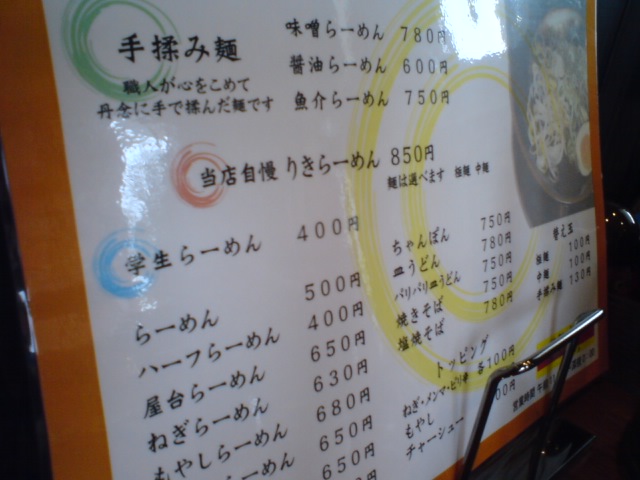 手揉み麺
職人が心をこめて
丹念に手で揉んだ麺です
味噌らーめん 780円
醤油らーめん 600円
魚介らーめん 750円
当店自慢 りきらーめん 850円
麺は選べます 細麺 中麺
学生らーめん 400円
らーめん 500円
ハーフらーめん 400円
屋台らーめん 650円
ねぎらーめん 630円
もやしらーめん 680円
らーめん 650円
650円
ちゃんぽん 750円
皿うどん 780円
パリパリ皿うどん 750円
焼きそば 750円
塩焼そば 780円
替え玉
細麺 100円
中麺 100円
手揉み麺 130円
トッピング
ねぎ・メンマ・ピリ辛 各100円
もやし
チャーシュー
営業時間 午前